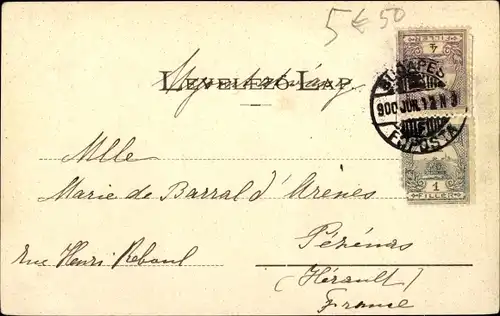 5 € 50
LEVELEZŐ-LAP
4
FILLER
BUDAPEST
900 JUN. 12 N 3
FŐPOSTA
1
FILLER
Mlle
Marie de Barral d'Arènes
Rue Henri Reboul
Pézénas
(Hérault)
France